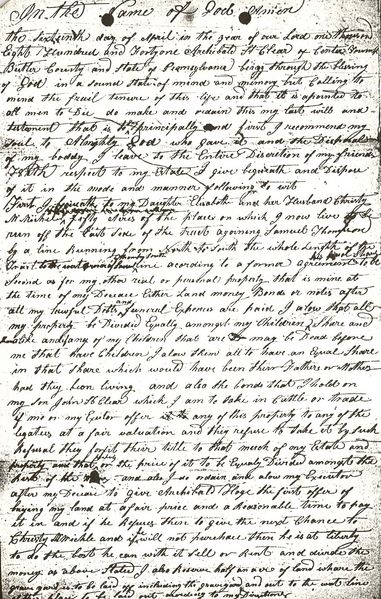 In the Name of God Amen
the Sixteenth day of April in the year of our Lord one thousan
Eight Hundred and Fortyone Archibald St Clear of Center Township
Butler County and State of Pennsylvania being through the blessing
of God in a sound state of mind and memory but Calling to
mind the frail tenure of this life and that it is apointed to
all men to Die do make and ordain this my last will and
testament that is to principally and first I recommend my
Soul to Almighty God who gave it and the Disposal
of my boddy I leave to the Entire Discretion of my friends
respect to my Estate I give bequeath and Dispose
of it in the mode and manner following to wit
First I bequeath to my Daughter Elisabeth and her Husband Christy
McMichle fifty Acres of the place on which I now live to be
run off the East side of the tract ajoining Samuel Thompson
by a line Running from North to South the whole Length of the
tract line according to a former agreement to be
Second as for my other real or personal property that is mine at
the time of my Decease Either Land money Bonds or notes after
all my lawful Debts and Funeral Expences are paid I alow that all
my property be Divided Equally amongst my Children Share and
alike and if any of my Children that are or may be Dead before
me that have Children I alow them all to have an Equal Share
in that Share which would have been their Fathers or Mothers
had they been living and also the bonds that I hold on
my Son John St Clear which I am to take in Cattle or trade
if me or my Exetor offer any of this property to any of the
legatees at a fair valuation and they refuse to take it by such
Refusal they forfit their title to that much of my Estate and
property and that or the price of it to be Equaly Divided amongst the
rest of the and also I do ordain and alow my Executor
after my Decease to give Archibald Hoge the first offer of
buying my land at a fair price and a Reasonable time to pay
it in and if he Refuses then to give the next Chance to
Christy McMichle and if will not purchase then he is at liberty
to do the best he can with it Sell or Rent and divide the
money as above Stated I also Reserve half an acre of land where the
grave yard is to be laid off including the graveyard and out to the west line
place to be laid out acording to my Directions